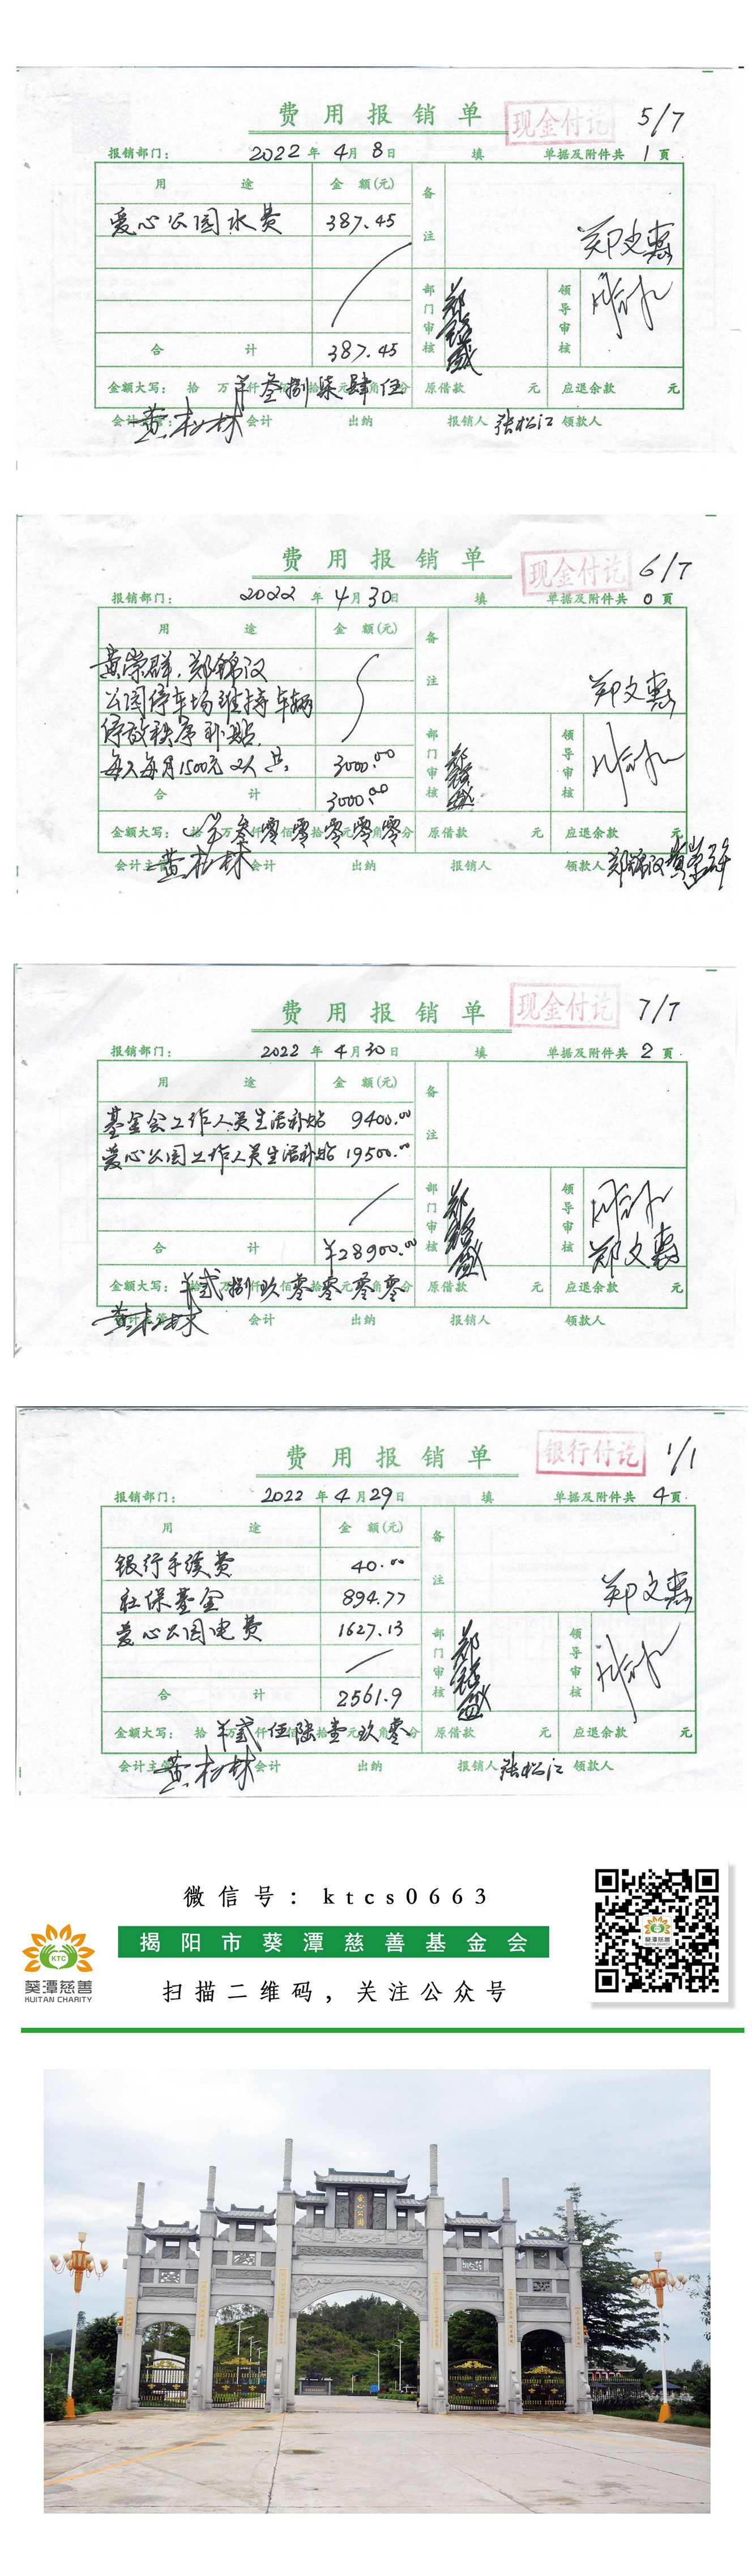 费用报销单 现金付讫 5/7
报销部门： 2022年4月8日 填 单据及附件共1页
用途 金额(元) 备注
爱心公园水费 387.45
郑文惠
部门审核 领导审核
合计 387.45
金额大写： 拾万¥仟叁佰捌拾柒元肆角伍分 原借款 元 应退余款 元
会计主管： 会计 出纳 报销人 张松江 领款人
费用报销单 现金付讫 6/7
报销部门： 2022年4月30日 填 单据及附件共0页
用途 金额(元) 备注
黄崇群、郑锦汉
公园停车场维持车辆
停放秩序补贴,
每人每月1500元2人共 3000.00
郑文惠
部门审核 领导审核
合计 3000.00
金额大写： 拾¥万叁仟零佰零拾零元零角零分 原借款 元 应退余款 元
会计主管 会计 出纳 报销人 领款人 郑锦汉 黄崇群
费用报销单 现金付讫 7/7
报销部门： 2022年4月30日 填 单据及附件共2页
用途 金额(元) 备注
基金会工作人员生活补贴 9400.00
爱心公园工作人员生活补贴 19500.00
部门审核 领导审核
郑文惠
合计 ¥28900.00
金额大写： ¥拾贰万捌仟玖佰零拾零元零角零分 原借款 元 应退余款 元
会计主管 会计 出纳 报销人 领款人
费用报销单 银行付讫 1/1
报销部门： 2022年4月29日 填 单据及附件共4页
用途 金额(元) 备注
银行手续费 40.00
社保基金 894.77
爱心公园电费 1627.13
郑文惠
部门审核 领导审核
合计 2561.9
金额大写： 拾¥万贰仟伍佰陆拾壹元玖角零分 原借款 元 应退余款 元
会计主管 会计 出纳 报销人 张松江 领款人
微信号：ktcs0663
揭阳市葵潭慈善基金会
扫描二维码，关注公众号
KTC
葵潭慈善
KUITAN CHARITY
爱心公园